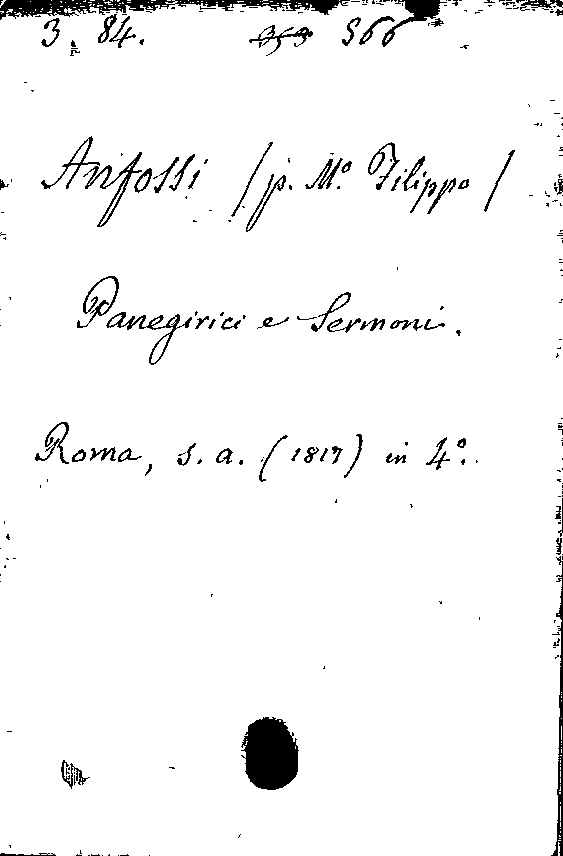 3. 84. 353 366
Anfossi /p. M.º Filippo/
Panegirici e Sermoni.
Roma, s. a. (1817) in 4º.